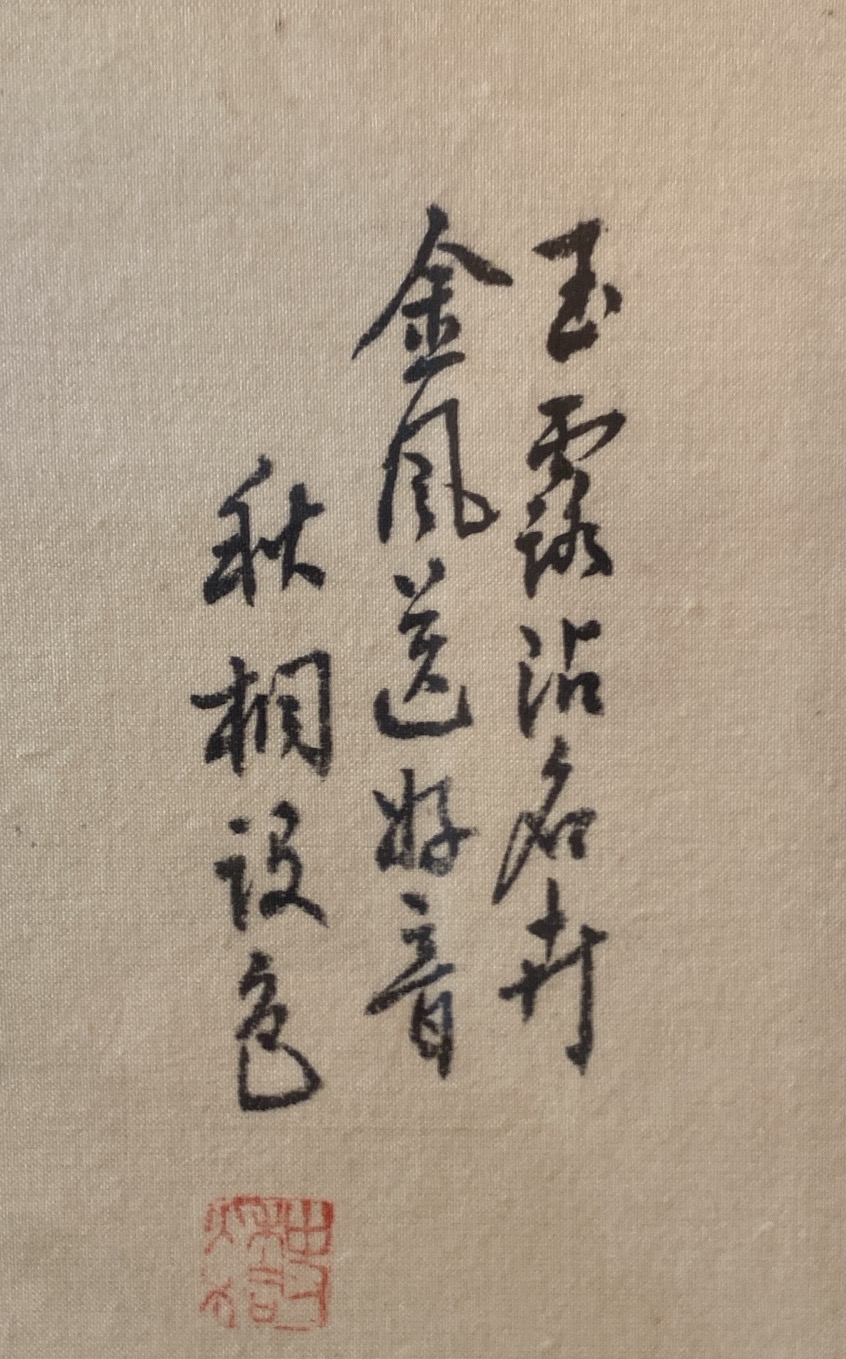 玉露沾名卉
金風送好音
秋桐設色